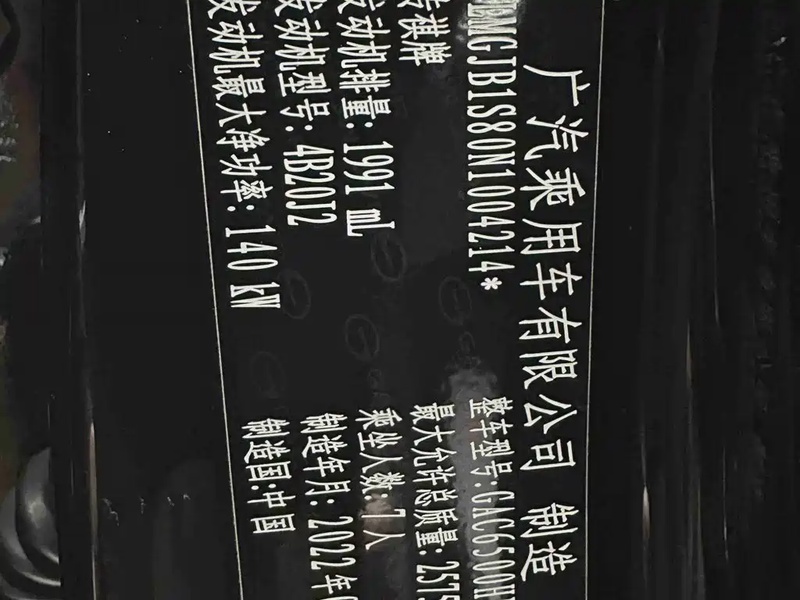 广汽乘用车有限公司 制造
MGJB1S80N1004214* 整车型号:GAC6500H
传祺牌 最大允许总质量:2575
发动机排量:1991 mL 乘坐人数:7人
发动机型号:4B20J2 制造年月:2022年
发动机最大净功率:140 kW 制造国:中国